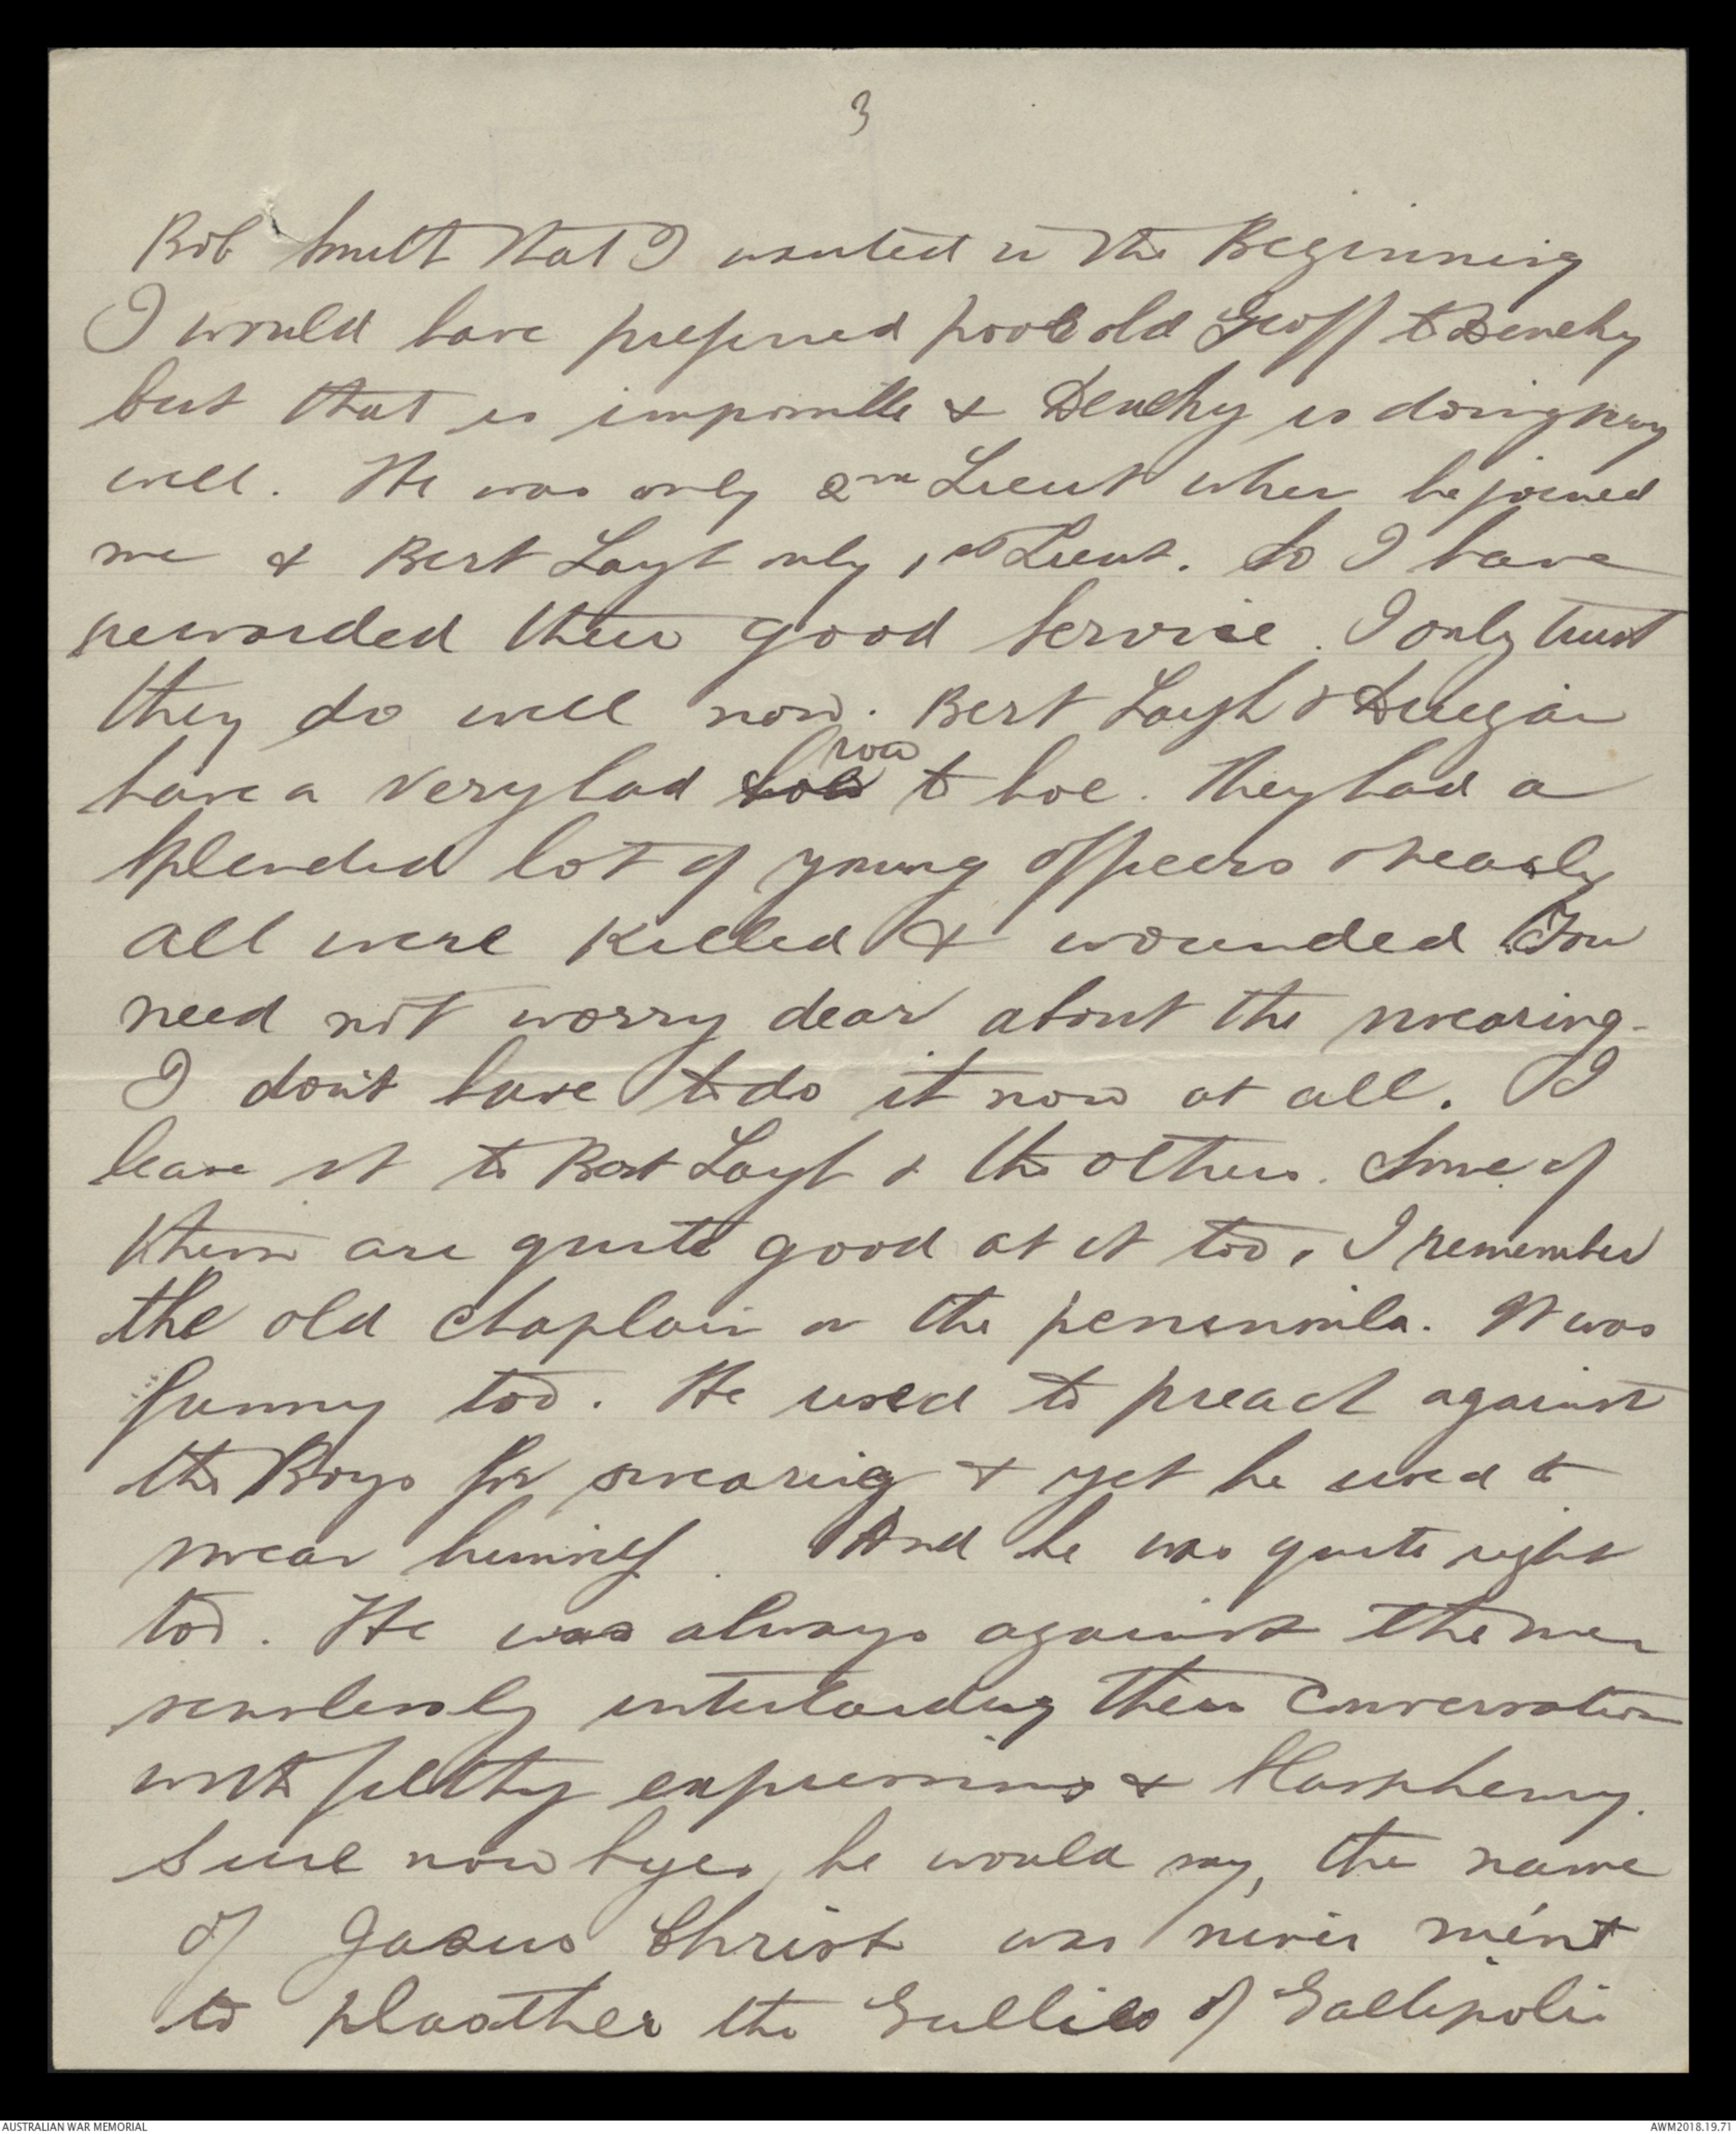 3
Bob Smith that I wanted in the Beginning
I would have preferred poor old Geoff to Denehy
but that is impossible & Denehy is doing very
well. He was only 2nd Lieut when he joined
me & Bert Layh only 1st Lieut. So I have
rewarded their good service. I only trust
they do well now. Bert Layh & Duigan
have a very bad row to hoe. They had a
splendid lot of young officers & nearly
all were killed & wounded You
need not worry dear about the swearing.
I don't have to do it now at all. I
leave it to Bert Layh & the others. Some of
them are quite good at it too. I remember
the old chaplain on the peninsula. It was
funny too. He used to preach against
the Boys for swearing & yet he used to
swear himself. And he was quite right
too. He was always against the men
senselessly interlarding their conversation
with filthy expressions & blasphemy.
Sure now byes, he would say, the name
of Jasus Christ was niver mént
to plasther the Gullies of Gallipoli
AUSTRALIAN WAR MEMORIAL
AWM2018.19.71